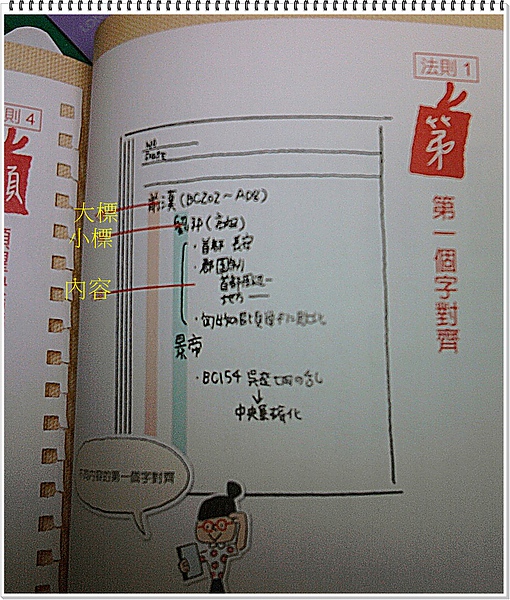 法則 1
第
第一個字對齊
則 4
No.
Date
大標
前漢(BC202～AD8)
小標
劉邦(高祖)
・首都 長安
・郡國制
內容
首都周辺—
地方—
景帝
・BC154 吳楚七国の乱
↓
中央集権化
不同內容的第一個字對齊